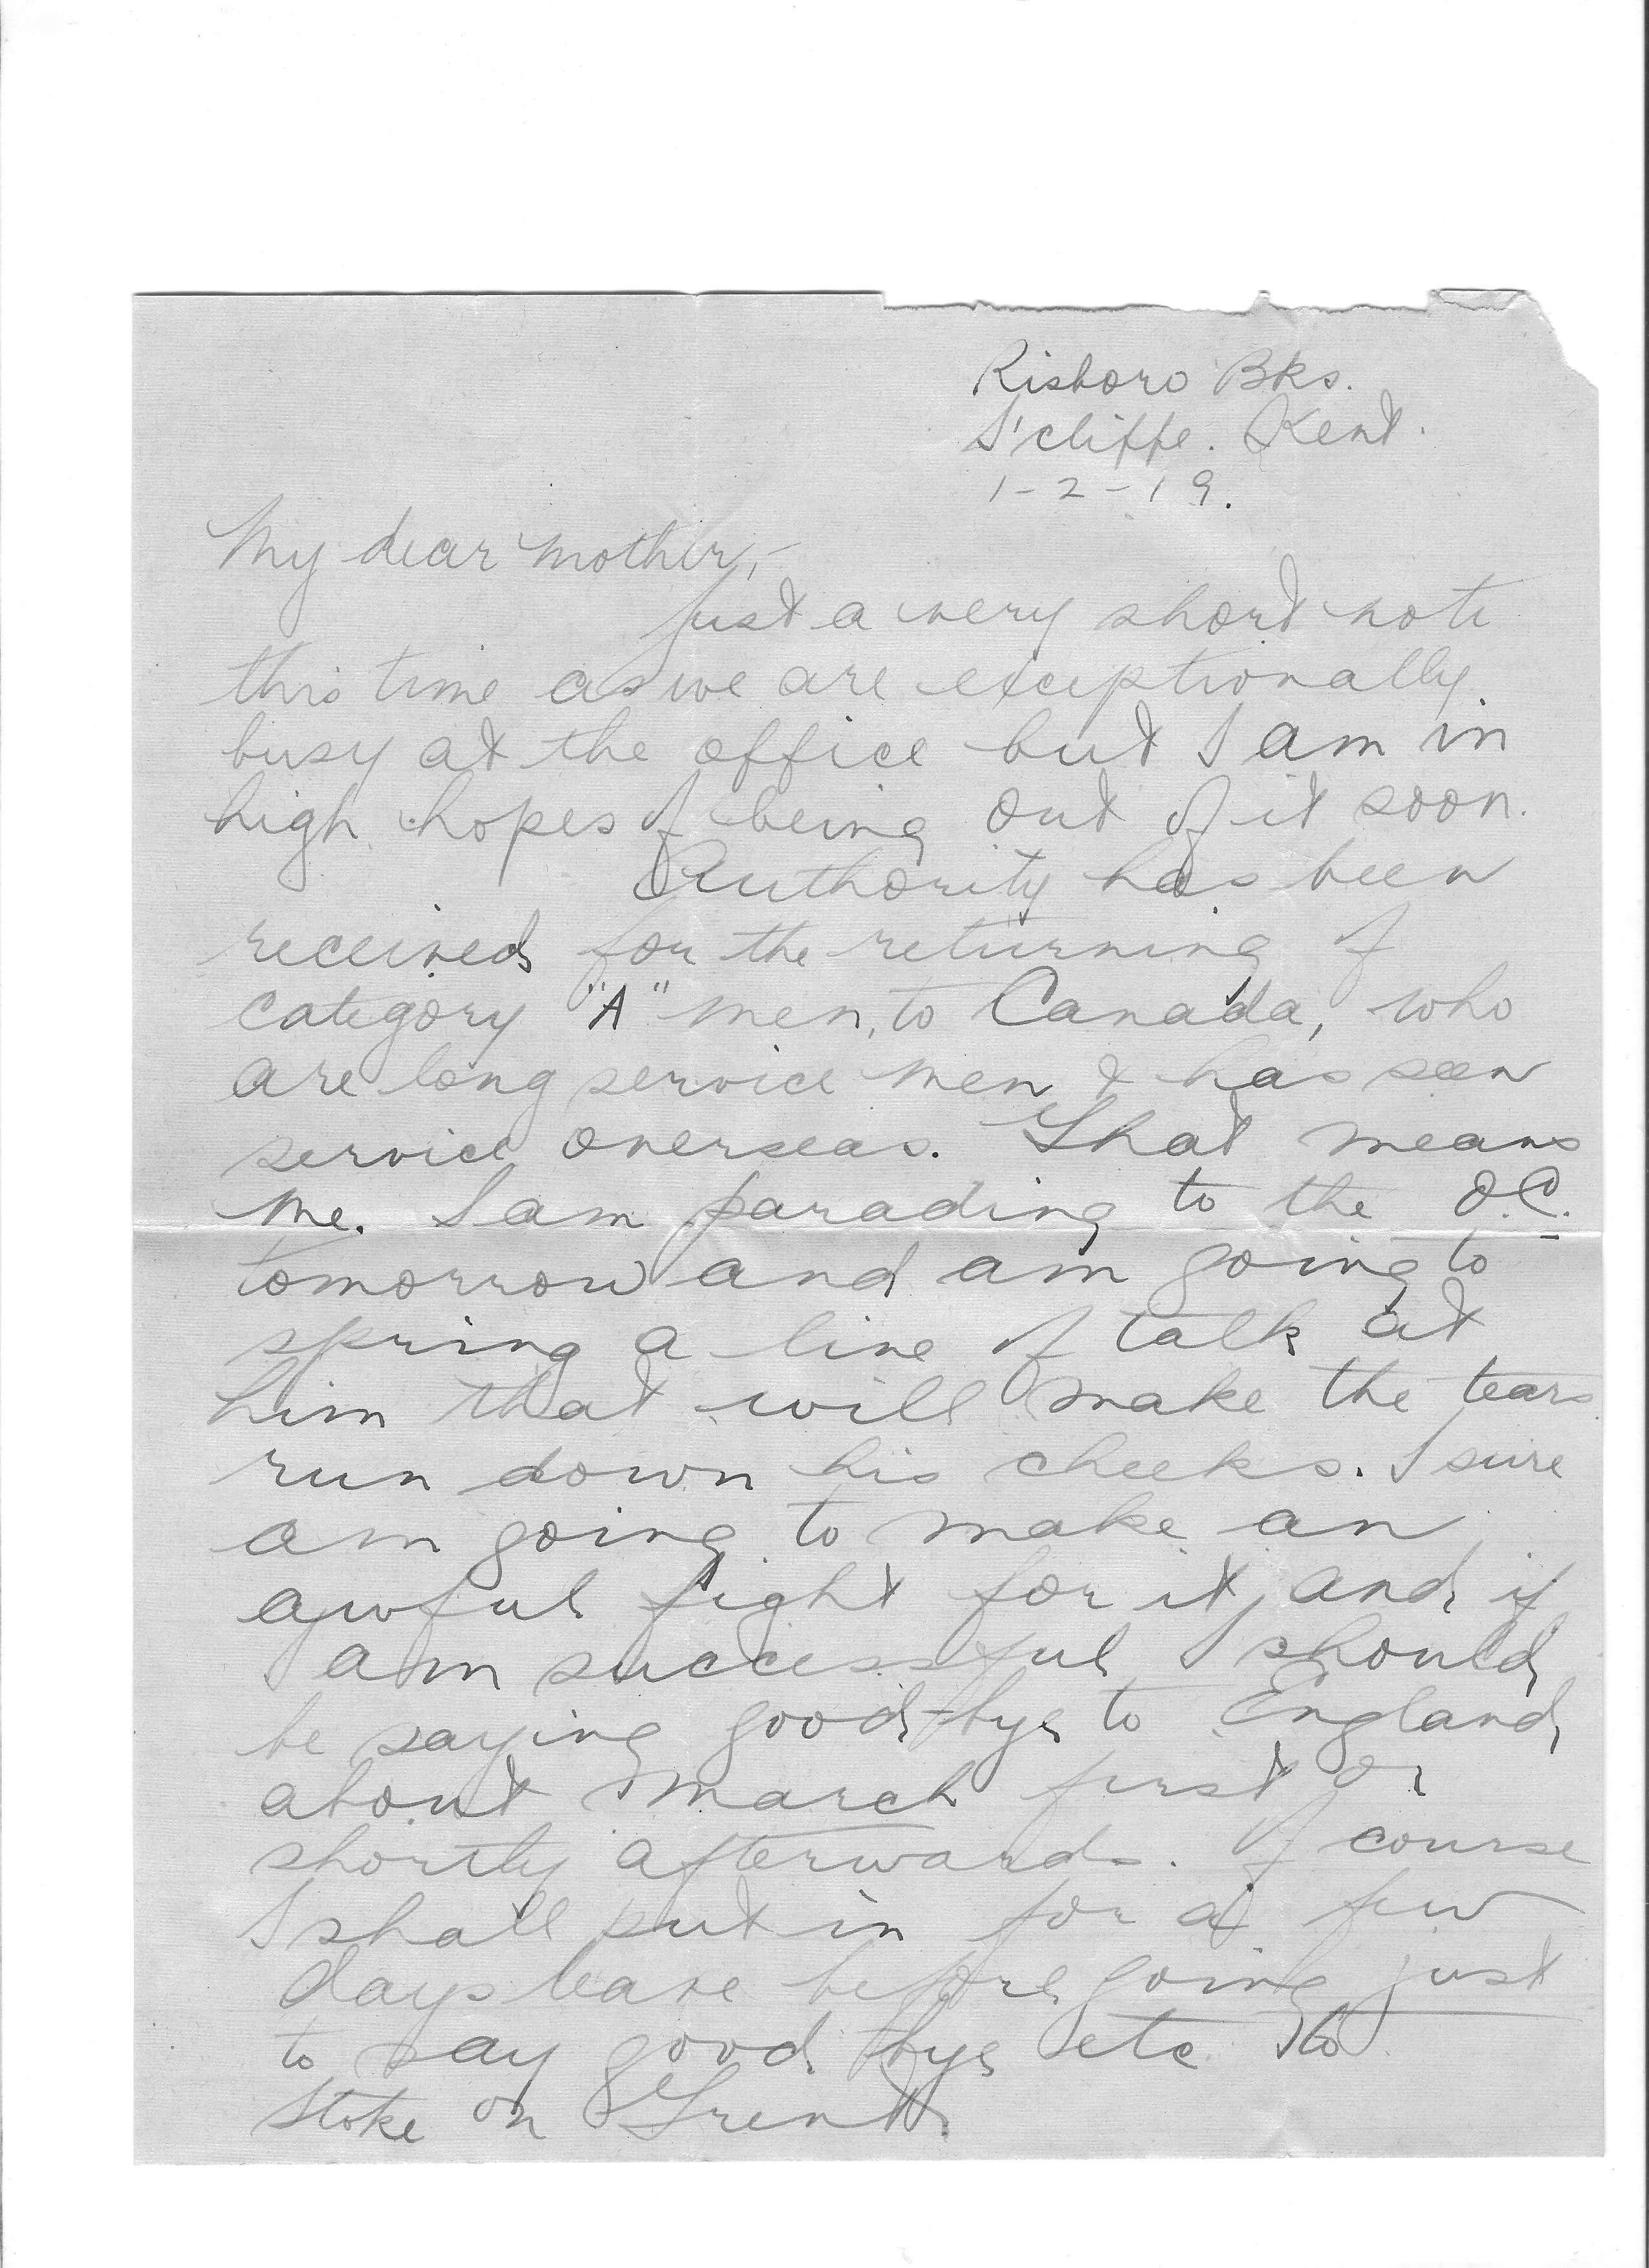 Risboro Bks.
S'cliffe. Kent.
1-2-19.
My dear Mother,-
Just a very short note
this time as we are exceptionally
busy at the office but I am in
high hopes of being out of it soon.
Authority has been
received for the returning of
category "A" men, to Canada, who
are long service men & has seen
service overseas. That means
me. I am parading to the O.C.
tomorrow and am going to
spring a line of talk at
him that will make the tears
run down his cheeks. I sure
am going to make an
awful fight for it, and if
I am successful I should
be saying good-bye to England
about March first or
shortly afterwards. Of course
I shall put in for a few
days leave before going just
to say good bye etc to
Stoke on Trent.